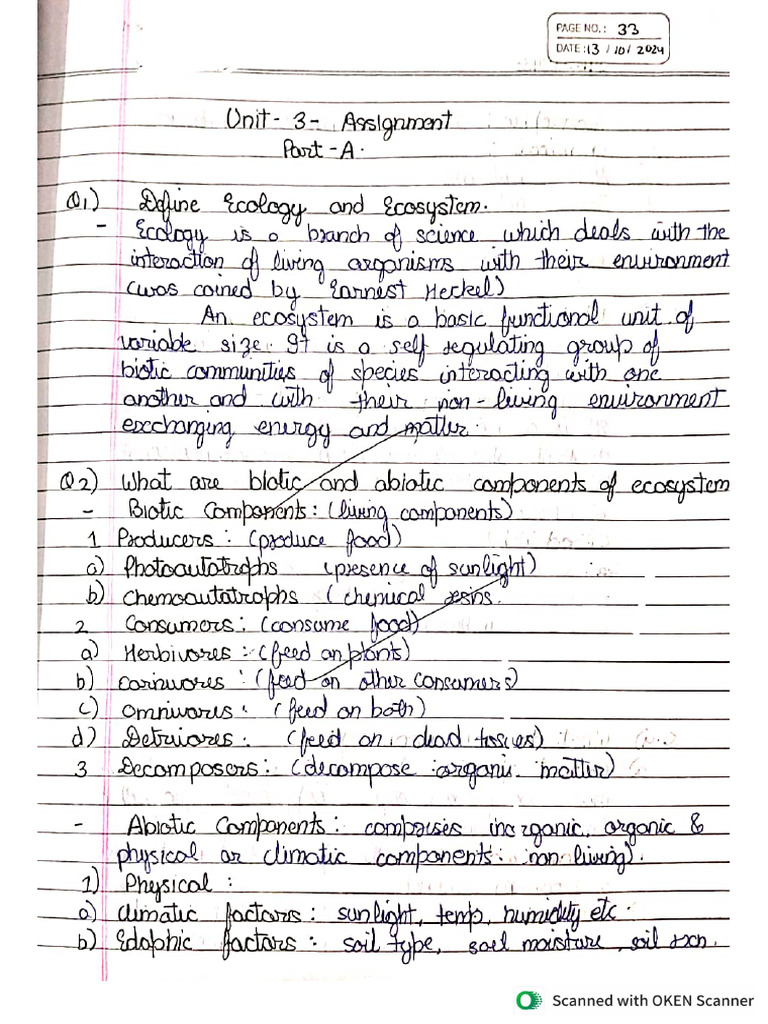 PAGE NO.: 33
DATE: 13 / 10 / 2024
Unit - 3 - Assignment
Part - A.
Q1) Define Ecology and Ecosystem.
- Ecology is a branch of science which deals with the
interaction of living organisms with their environment
(was coined by Earnest Heckel)
An ecosystem is a basic functional unit of
variable size. It is a self regulating group of
biotic communities of species interacting with one
another and with their non-living environment
exchanging energy and matter.
Q2) What are biotic and abiotic components of ecosystem
- Biotic Components: (living components)
1 Producers: (produce food)
a) Photoautotrophs (presence of sunlight)
b) Chemoautotrophs (chemical
2. Consumers: (consume food)
a) Herbivores: (feed on plants)
b) Carnivores: (feed on other consumers)
c) Omnivores: (feed on both)
d) Detriores: (feed on dead tissues)
3 Decomposers: (decompose organic matter)
- Abiotic Components: comprises inorganic, organic &
physical or climatic components. non living).
1) Physical:
a) Climatic factors: sunlight, temp, humidity etc.
b) Edaphic factors: soil type, soil moisture, soil rxn.
Scanned with OKEN Scanner